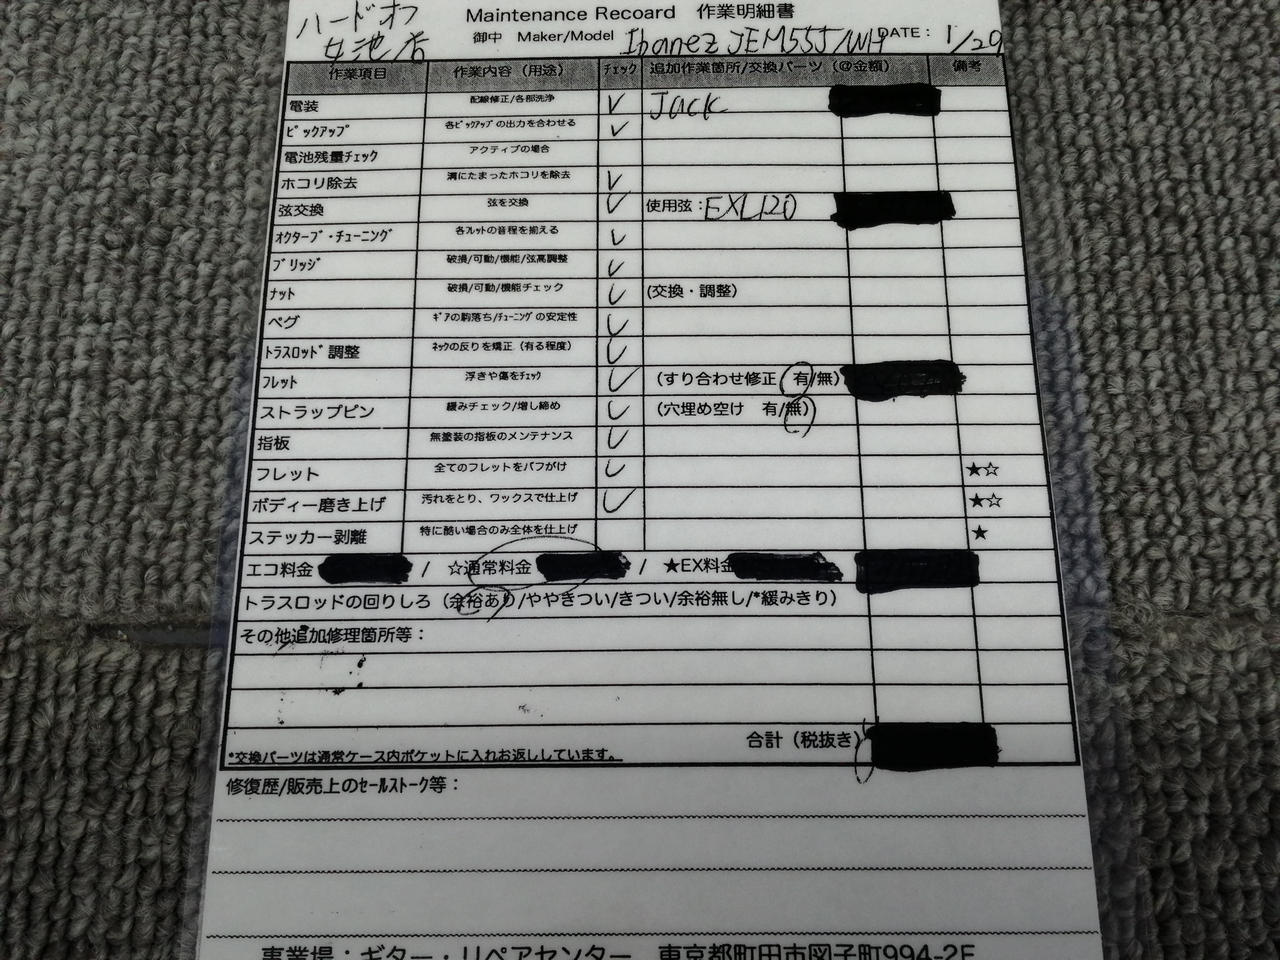 ハードオフ
女池店
Maintenance Recoard 作業明細書
御中 Maker/Model Ibanez JEM55J/WH DATE: 1/29
作業項目 作業内容(用途) チェック 追加作業箇所/交換パーツ(@金額) 備考
電装 配線修正/各部洗浄 ✓ Jack
ピックアップ 各ピックアップの出力を合わせる ✓
電池残量チェック アクティブの場合
ホコリ除去 溝にたまったホコリを除去 ✓
弦交換 弦を交換 ✓ 使用弦:EXL120
オクターブ・チューニング 各フレットの音程を揃える ✓
ブリッジ 破損/可動/機能/弦高調整 ✓
ナット 破損/可動/機能チェック ✓ (交換・調整)
ペグ ギアの駒落ち/チューニングの安定性 ✓
トラスロッド調整 ネックの反りを矯正(有る程度) ✓
フレット 浮きや傷をチェック ✓ (すり合わせ修正 有/無)
ストラップピン 緩みチェック/増し締め ✓ (穴埋め空け 有/無)
指板 無塗装の指板のメンテナンス ✓
フレット 全てのフレットをバフがけ ✓ ★☆
ボディー磨き上げ 汚れをとり、ワックスで仕上げ ✓ ★☆
ステッカー剥離 特に酷い場合のみ全体を仕上げ ★
エコ料金 / ☆通常料金 / ★EX料金
トラスロッドの回りしろ(余裕あり/ややきつい/きつい/余裕無し/*緩みきり)
その他追加修理箇所等:
合計(税抜き)
*交換パーツは通常ケース内ポケットに入れお返ししています。
修復歴/販売上のセールストーク等:
事業場:ギター・リペアセンター 東京都町田市図子町994-2F